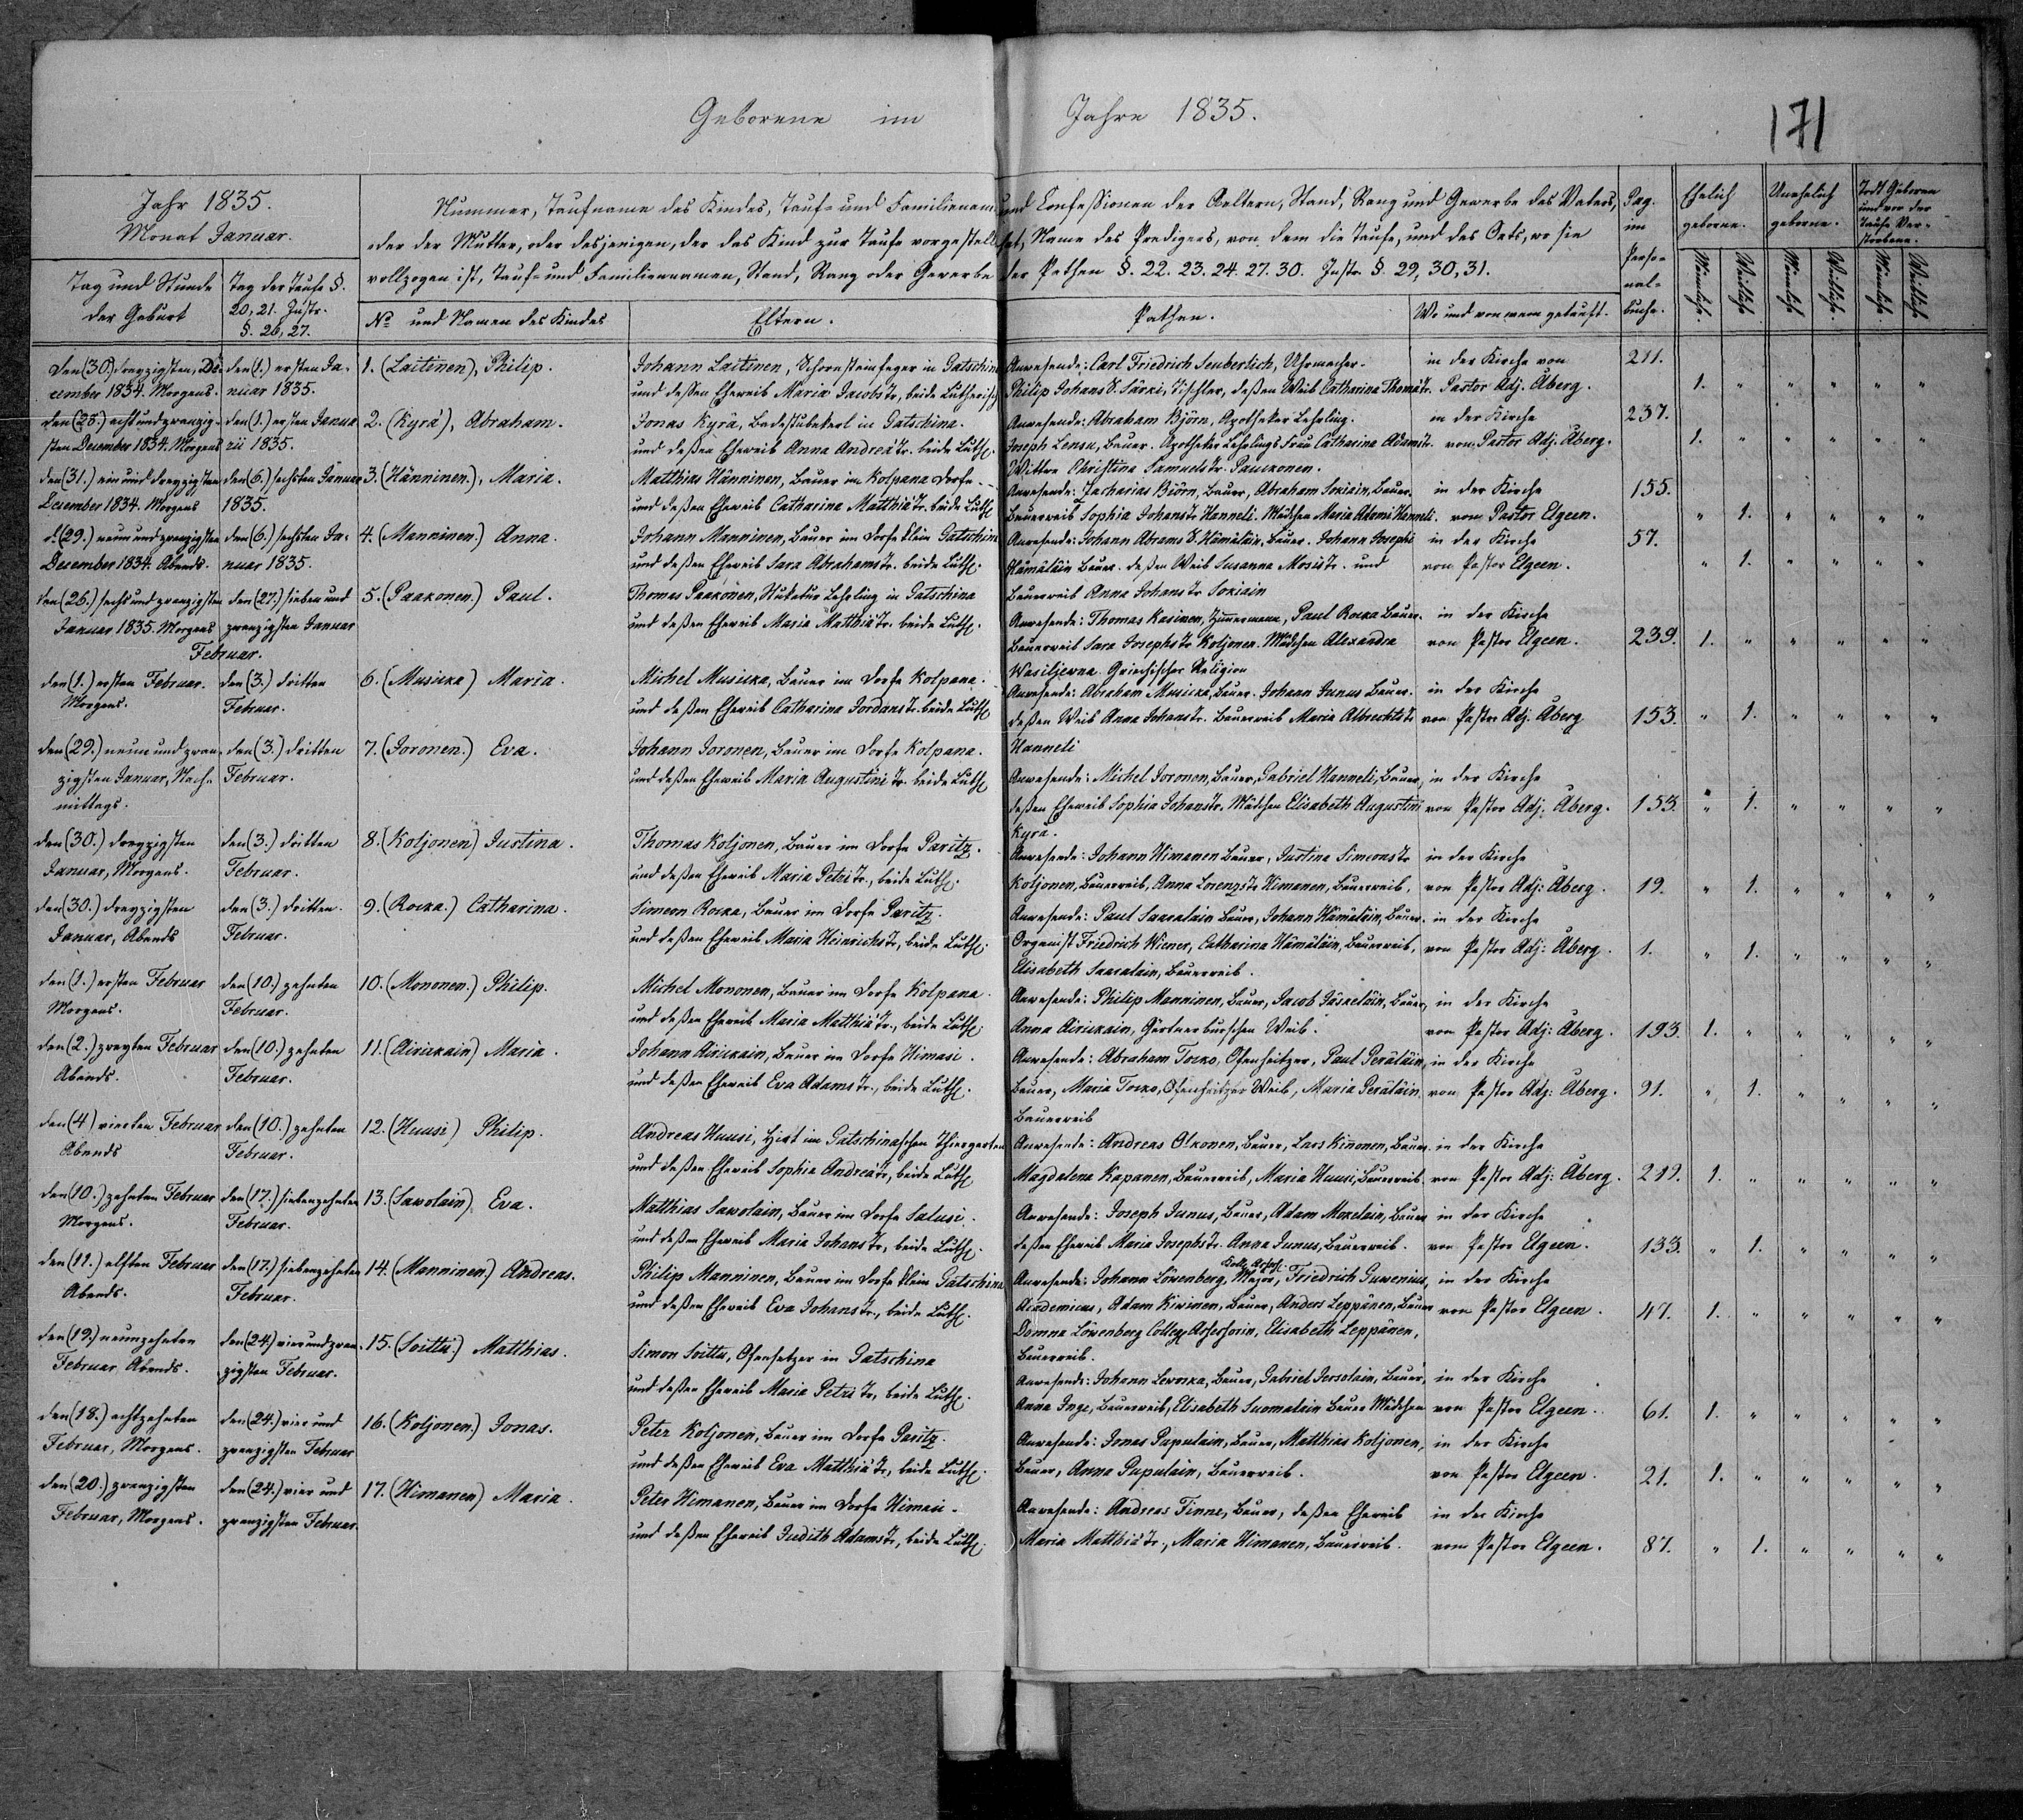 Geborene im Jahre 1835.
171
Jahr 1835.
Monat Januar.
Tag und Stunde
der Geburt
Tag der Taufe §.
20, 21. Instr.
§. 26, 27.
Nummer, Taufname des Kindes, Tauf- und Familiennamen und Confessionen der Aeltern, Stand, Rang und Gewerbe des Vaters,
oder der Mutter, oder desjenigen, der das Kind zur Taufe vorgestellt hat, Name des Predigers, von dem die Taufe, und des Orts, wo sie
vollzogen ist, Tauf- und Familiennamen, Stand, Rang oder Gewerbe der Pathen §. 22. 23. 24. 27. 30. Instr. §. 29, 30, 31.
No und Namen des Kindes
Eltern.
Pathen.
Wo und von wem getauft.
Pag.
im
Perso-
nal-
buche.
Ehelich
geborne.
Unehelich
geborne.
Todt Geboren
und vor der
Taufe Ver-
storbene.
Männlich. Weiblich. Männlich. Weiblich. Männlich. Weiblich.
den (30.) dreyzigsten, De-
cember 1834. Morgens.
den (1.) ersten Ja-
nuar 1835.
1. (Laitinen), Philip.
Johann Laitinen, Schornsteinfeger in Gatschina
und deßen Eheweib Maria Jacobs Tr. beide Lutherisch
Anwesende: Carl Friedrich Seuberlich, Uhrmacher.
Philip Johans S. Särki, Tischler, deßen Weib Catharina Thomä Tr.
in der Kirche von
Pastor Adj. Åberg.
211.
1. " " " " "
den (28.) acht und zwanzig-
sten December 1834. Morgens
den (1.) ersten Janua-
rii 1835.
2. (Kyrä), Abraham.
Jonas Kyrä, Badestubekerl in Gatschina.
und deßen Eheweib Anna Andreä Tr. beide Luth.
Anwesende: Abraham Björn, Apotheker Lehrling.
Joseph Lensu, Bauer. Apotheker Lehrlings Frau Catharina Adams Tr.
Wittwe Christina Samuels Tr. Pauckonen.
in der Kirche
von Pastor Adj. Åberg.
237.
1. " " " " "
den (31.) ein und dreyzigsten
December 1834. Morgens
den (6.) sechsten Januar
1835.
3. (Hänninen.), Maria.
Matthias Hänninen, Bauer im Kolpana Dorfe
und deßen Eheweib Catharina Matthiä Tr. beide Luth.
Anwesende: Zacharias Björn, Bauer, Abraham Sokiain, Bauer.
Bauerweib Sophia Johans Tr Hanneli. Mädchen Maria Adami Hanneli.
in der Kirche
von Pastor Elgeen.
155.
" 1. " " " "
d. (29.) neun und zwanzigsten
December 1834. Abends.
den (6.) sechsten Ja-
nuar 1835.
4. (Manninen.) Anna.
Johann Manninen, Bauer im Dorfe klein Gatschina
und deßen Eheweib Sara Abrahams Tr. beide Luth.
Anwesende: Johann Abrams S. Hämäläin, Bauer. Johann Josephs
Hämäläin Bauer. deßen Weib Susanna Mosis Tr. und
Bauerweib Anna Johans Tr Sokiain
in der Kirche
von Pastor Elgeen.
57.
" 1. " " " "
den (26.) sechs und zwanzigsten
Januar 1835. Morgens
den (27.) sieben und
zwanzigsten Januar
5. (Paakonen.) Paul.
Thomas Paakonen, Stukatur Lehrling in Gatschina
und deßen Eheweib Maria Matthiä Tr. beide Luth.
Anwesende: Thomas Kasinen, Zimmermann, Paul Rocka Bauer.
Bauerweib Sara Josephs Tr Koljonen. Mädchen Alexandra
Wasiljewna Griechischer Religion
in der Kirche
von Pastor Elgeen.
239.
1. " " " " "
Februar.
den (1.) ersten Februar.
Morgens.
den (3.) dritten
Februar.
6. (Musicka) Maria.
Michel Musicka, Bauer im Dorfe Kolpana.
und deßen Eheweib Catharina Jordans Tr. beide Luth.
Anwesende: Abraham Musicka, Bauer. Johann Junus Bauer.
deßen Weib Anna Johans Tr. Bauerweib Maria Albrechts Tr
Hanneli
in der Kirche
von Pastor Adj. Åberg
153.
" 1. " " " "
den (29.) neun und zwan-
zigsten Januar, Nach-
mittags.
den (3.) dritten
Februar.
7. (Joronen.) Eva.
Johann Joronen, Bauer im Dorfe Kolpana.
und deßen Eheweib Maria Augustini Tr. beide Luth.
Anwesende: Michel Joronen, Bauer, Gabriel Hanneli, Bauer,
deßen Eheweib Sophia Johans Tr. Mädchen Elisabeth Augustini
Kyrä.
in der Kirche
von Pastor Adj: Åberg.
153.
" 1. " " " "
den (30.) dreyzigsten
Januar, Morgens.
den (3.) dritten
Februar.
8. (Koljonen) Justina.
Thomas Koljonen, Bauer im Dorfe Paritz.
und deßen Eheweib Maria Petri Tr., beide Luth.
Anwesende: Johann Himanen Bauer, Justina Simeons Tr
Koljonen, Bauerweib, Anna Lorenzs Tr Himanen, Bauerweib.
in der Kirche
von Pastor Adj: Åberg.
19.
" 1. " " " "
den (30.) dreyzigsten
Januar, Abends
den (3.) dritten
Februar.
9. (Rocka.) Catharina.
Simeon Rocka, Bauer im Dorfe Paritz.
und deßen Eheweib Maria Heinrichs Tr, beide Luth.
Anwesende: Paul Saaralain Bauer, Johann Hämäläin, Bauer.
Organist Friedrich Wiener, Catharina Hämäläin, Bauerweib,
Elisabeth Saaralain, Bauerweib.
in der Kirche
von Pastor Adj: Åberg.
1.
" 1. " " " "
den (1.) ersten Februar
Morgens.
den (10.) zehnten
Februar.
10. (Mononen.) Philip.
Michel Mononen, Bauer im Dorfe Kolpana.
und deßen Eheweib Maria Matthiä Tr., beide Luth.
Anwesende: Philip Manninen, Bauer, Jacob Jäskeläin, Bauer,
Anna Airickain, Gärtnerburschen Weib.
in der Kirche
von Pastor Adj: Åberg.
193.
1. " " " " "
den (2.) zweyten Februar
Abends.
den (10.) zehnten
Februar.
11. (Airickain) Maria.
Johann Airickain, Bauer im Dorfe Himasi.
und deßen Eheweib Eva Adams Tr., beide Luth.
Anwesende: Abraham Tocko, Ofenheitzer, Paul Peräläin,
Bauer, Maria Tocko, Ofenheitzer Weib, Maria Peräläin
Bauerweib
in der Kirche
von Pastor Adj: Åberg.
91.
" 1. " " " "
den (4) vierten Februar
Abends
den (10.) zehnten
Februar.
12. (Huusi) Philip.
Andreas Huusi, Hirt im Gatschinaschen Thiergarten
und deßen Eheweib Sophia Andreä Tr, beide Luth.
Anwesende: Andreas Ockonen, Bauer, Lars Kinonen, Bauer.
Magdalena Kapanen, Bauerweib, Maria Huusi, Bauerweib.
in der Kirche
von Pastor Adj: Åberg.
212.
1. " " " " "
den (10.) zehnten Februar
Morgens.
den (17.) siebenzehnten
Februar.
13. (Sawolain) Eva.
Matthias Sawolain, Bauer im Dorfe Salusi.
und deßen Eheweib Maria Johans Tr, beide Luth.
Anwesende: Joseph Junus, Bauer, Adam Mokelain, Bauer
deßen Eheweib Maria Josephs Tr. Anna Junus, Bauerweib.
in der Kirche
von Pastor Elgeen.
133.
" 1. " " " "
den (11.) elften Februar
Abends.
den (17.) siebenzehnten
Februar.
14. (Manninen.) Andreas.
Philip Manninen, Bauer im Dorfe klein Gatschina
und deßen Eheweib Eva Johans Tr., beide Luth.
Anwesende: Johann Löwenberg, Major, Friedrich Guwenius,
Academicus, Adam Kirinen, Bauer, Anders Leppänen, Bauer
Domna Löwenberg Colleg. Assessorin, Elisabeth Leppänen,
Bauerweib.
in der Kirche
von Pastor Elgeen.
47.
1. " " " " "
den (19.) neunzehnten
Februar Abends.
den (24) vier und zwan-
zigsten Februar.
15. (Soittu.) Matthias.
Simon Soittu, Ofensetzer in Gatschina
und deßen Eheweib Maria Petri Tr, beide Luth.
Anwesende: Johann Lewocka, Bauer, Gabriel Jerselain, Bauer,
Anna Inge, Bauerweib, Elisabeth Suomalain Bauer Mädchen
in der Kirche
von Pastor Elgeen.
61.
1. " " " " "
den (18.) achtzehnten
Februar, Morgens.
den (24.) vier und
zwanzigsten Februar
16. (Koljonen.) Jonas.
Peter Koljonen, Bauer im Dorfe Paritz.
und deßen Eheweib Eva Matthiä Tr, beide Luth.
Anwesende: Jonas Pupulain, Bauer, Matthias Koljonen,
Bauer, Anna Pupulain, Bauerweib.
in der Kirche
von Pastor Elgeen.
21.
1. " " " " "
den (20.) zwanzigsten
Februar, Morgens.
den (24.) vier und
zwanzigsten Februar.
17. (Himanen) Maria.
Peter Himanen, Bauer im Dorfe Himasi.
und deßen Eheweib Judith Adams Tr, beide Luth.
Anwesende: Andreas Tinne, Bauer, deßen Eheweib
Maria Matthiä Tr., Maria Himanen, Bauerweib.
in der Kirche
vom Pastor Elgeen.
87.
" 1. " " " "